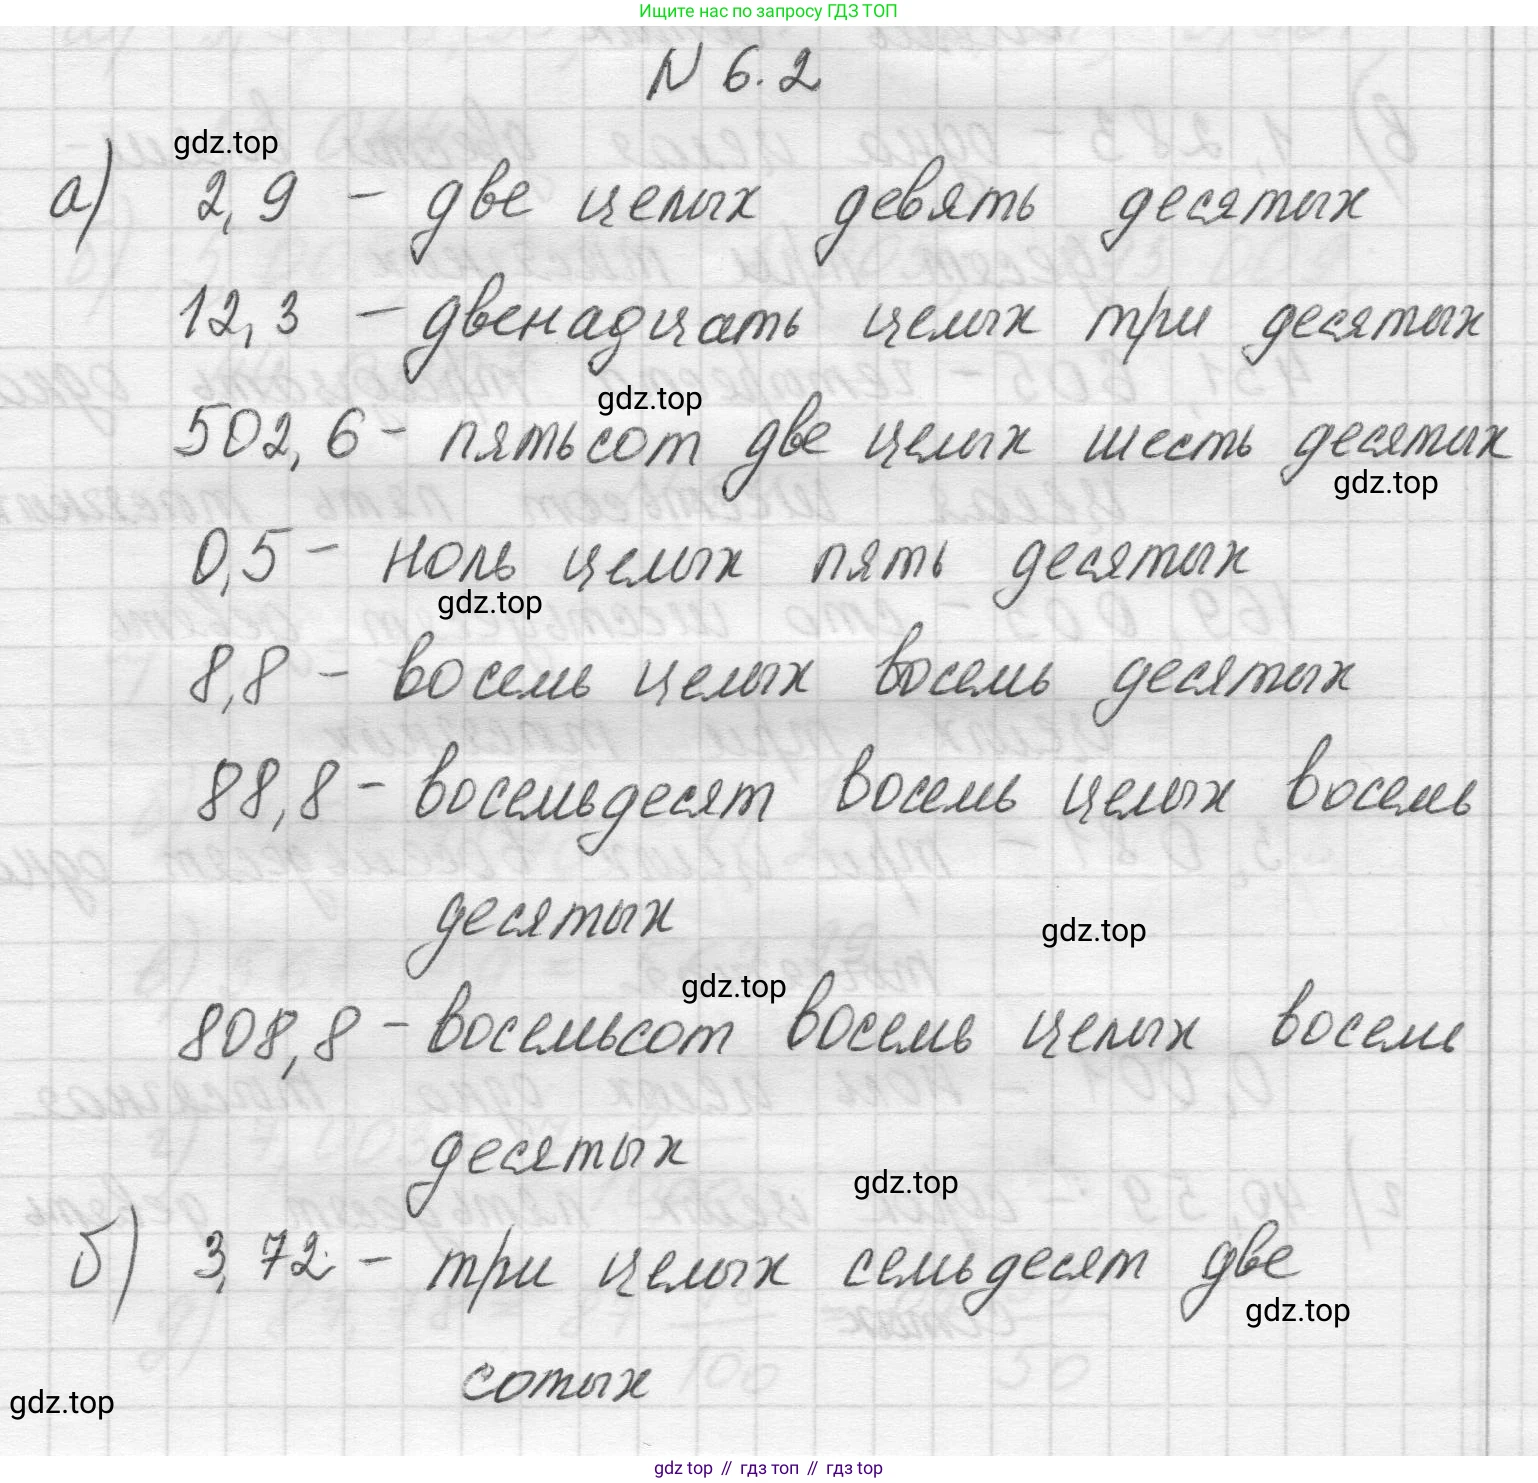 Ищите нас по запросу ГДЗ ТОП
N 6.2
gdz.top
а) 2,9 – две целых девять десятых
12,3 – двенадцать целых три десятых
gdz.top
502,6 – пятьсот две целых шесть десятых
gdz.top
0,5 – ноль целых пять десятых
gdz.top
8,8 – восемь целых восемь десятых
88,8 – восемьдесят восемь целых восемь
десятых
gdz.top
gdz.top
808,8 – восемьсот восемь целых восемь
десятых
gdz.top
б) 3,72 – три целых семьдесят две
gdz.top
сотых
gdz.top
gdz top // гдз топ // gdz top